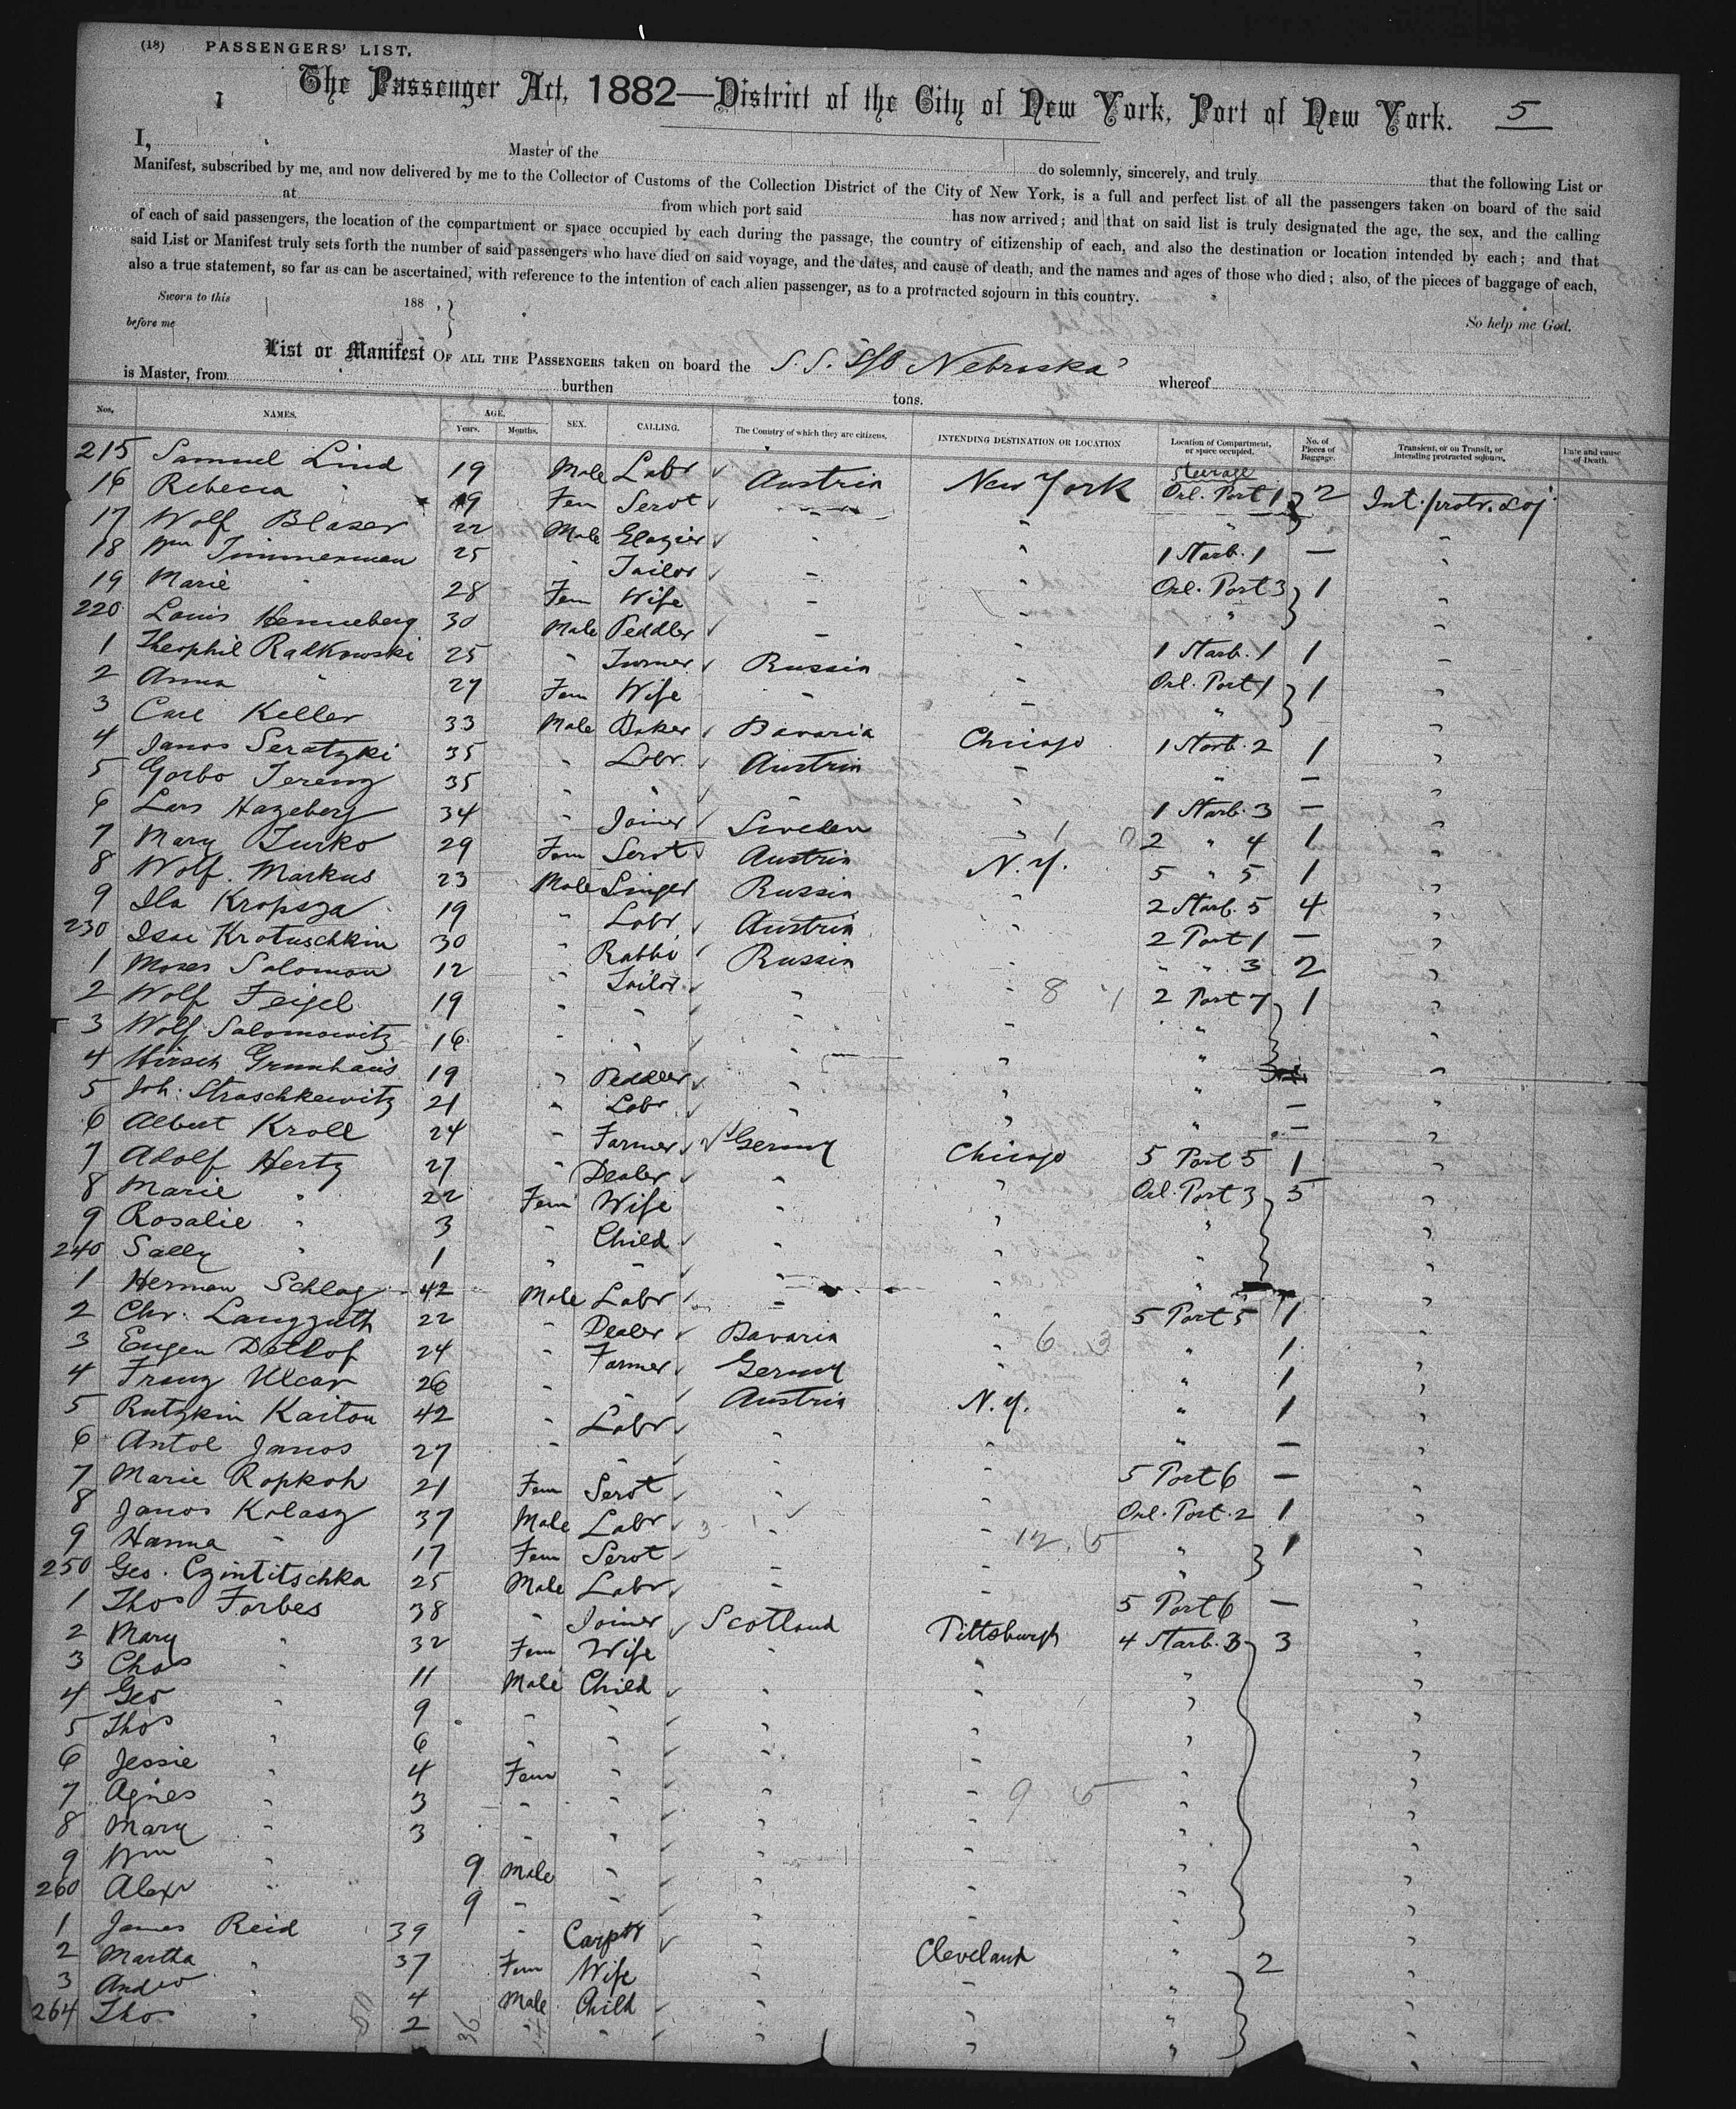 (18) PASSENGERS' LIST.
The Passenger Act, 1882—District of the City of New York, Port of New York. 5
I, Master of the do solemnly, sincerely, and truly that the following List or
Manifest, subscribed by me, and now delivered by me to the Collector of Customs of the Collection District of the City of New York, is a full and perfect list of all the passengers taken on board of the said
at from which port said has now arrived; and that on said list is truly designated the age, the sex, and the calling
of each of said passengers, the location of the compartment or space occupied by each during the passage, the country of citizenship of each, and also the destination or location intended by each; and that
said List or Manifest truly sets forth the number of said passengers who have died on said voyage, and the dates, and cause of death, and the names and ages of those who died; also, of the pieces of baggage of each,
also a true statement, so far as can be ascertained, with reference to the intention of each alien passenger, as to a protracted sojourn in this country.
Sworn to this 188 , } So help me God.
before me
List or Manifest OF ALL THE PASSENGERS taken on board the S.S. "S/o Nebraska" whereof
is Master, from burthen tons.
Nos. NAMES. AGE. Years. Months. SEX. CALLING. The Country of which they are citizens. INTENDING DESTINATION OR LOCATION Location of Compartment, or space occupied. No. of Pieces of Baggage. Transient, or on Transit, or intending protracted sojourn. Date and cause of Death.
215 Samuel Lind 19 Male Labr Austria New York Steerage Orl. Port 1 2 Int. protr. soj.
16 Rebecca " 19 Fem Servt " " "
17 Wolf Blaser 22 Male Glazier " " 1 Starb. 1 — "
18 Wm Timmerman 25 " Tailor " " Orl. Port 3 1 "
19 Marie " 28 Fem Wife " " " "
220 Louis Henneberg 30 Male Peddler " " 1 Starb. 1 1 "
1 Theophil Radkowski 25 " Turner Russia " Orl. Port 1 1 "
2 Anna " 27 Fem Wife " " " "
3 Carl Keller 33 Male Baker Bavaria Chicago 1 Starb. 2 1 "
4 Janos Seratzki 35 " Labr. Austria " " — "
5 Gorbo Ferenz 35 " " " " 1 Starb. 3 — "
6 Lars Hazeberg 34 " Joiner Sweden " 2 " 4 1 "
7 Mary Turko 29 Fem Servt Austria N.Y. 5 " 5 1 "
8 Wolf Markus 23 Male Singer Russia " 2 Starb. 5 4 "
9 Ila Kropsza 19 " Labr. Austria " 2 Port 1 — "
230 Isac Krotuschkin 30 " Rabbi Russia " " " 3 2 "
1 Moses Salomon 12 " Tailor " " 2 Port 7 1 "
2 Wolf Feigel 19 " " " " " "
3 Wolf Salomowitz 16 " " " " " "
4 Hirsch Grunhaus 19 " Peddler " " " — "
5 Joh. Straschkewitz 21 " Labr. " " " — "
6 Albert Kroll 24 " Farmer Germy Chicago 5 Port 5 1 "
7 Adolf Hertz 27 " Dealer " " Orl. Port 3 5 "
8 Marie " 22 Fem Wife " " " "
9 Rosalie " 3 " Child " " " "
240 Sally " 1 " " " " " "
1 Herman Schlag 42 Male Labr " " 5 Port 5 1 "
2 Chr. Langguth 22 " Dealer Bavaria " " 1 "
3 Eugen Detlof 24 " Farmer Germy " " 1 "
4 Franz Ulcar 26 " " Austria N.Y. " 1 "
5 Rutzkin Kaiton 42 " Labr " " " — "
6 Antol Janos 27 " " " " 5 Port 6 — "
7 Marie Ropkoh 21 Fem Servt " " Orl. Port 2 1 "
8 Janos Kolasz 37 Male Labr " " " 1 "
9 Hanna " 17 Fem Servt " " " "
250 Geo. Czintitschka 25 Male Labr " " 5 Port 6 — "
1 Thos Forbes 38 " Joiner Scotland Pittsburgh 4 Starb. 3 3 "
2 Mary " 32 Fem Wife " " " "
3 Chas " 11 Male Child " " " "
4 Geo " 9 " " " " " "
5 Thos " 6 " " " " " "
6 Jessie " 4 Fem " " " " "
7 Agnes " 3 " " " " " "
8 Mary " 3 " " " " " "
9 Wm " 9 Male " " " " "
260 Alexr " 9 " " " " " "
1 James Reid 39 " Carptr " Cleveland " 2 "
2 Martha " 37 Fem Wife " " " "
3 Andw " 4 Male Child " " " "
264 Thos " 2 " " " " " "